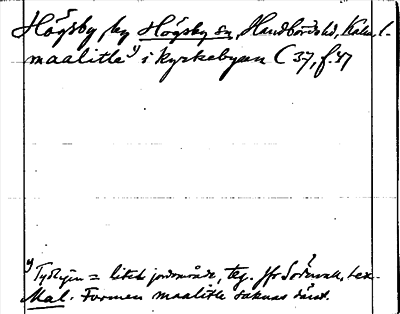 Högsby, by Högsby sn, Handbörds hd, Kalm. l.
maalitle 1) i kyrkebyenn C 37, f. 47
1) Tydligen = litet jordområde, teg. Jfr Söderwall, Lex.
Mal. Formen maalitle saknas därst.